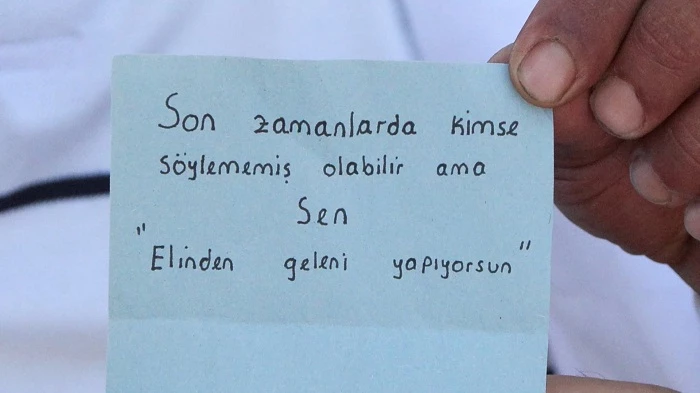 Son zamanlarda kimse
söylememiş olabilir ama
Sen
"Elinden geleni yapıyorsun"